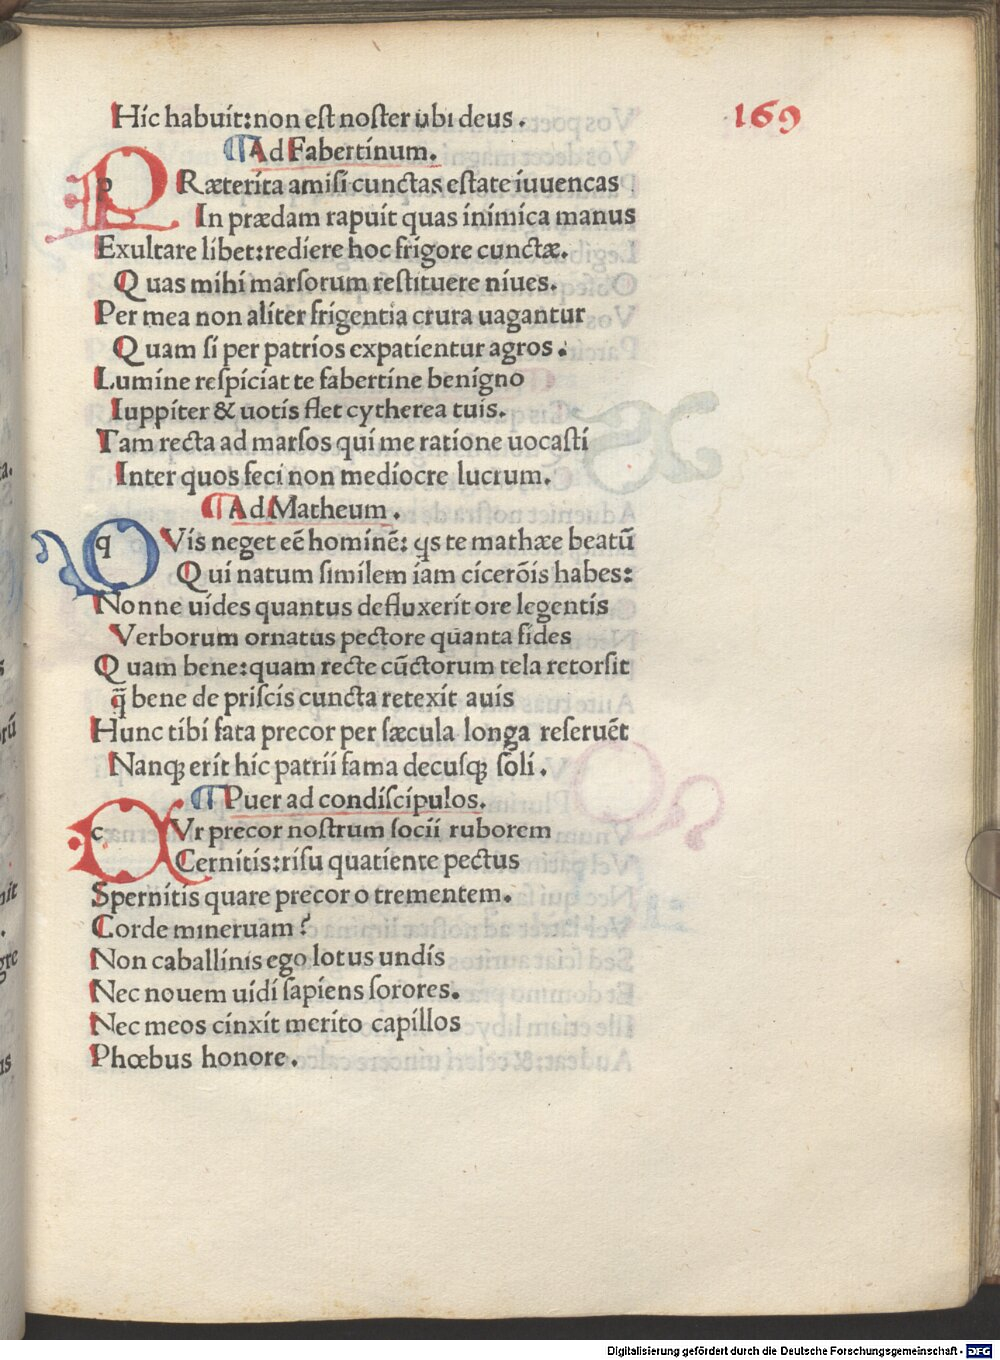 169
Hic habuit: non est noster ubi deus.
¶ Ad Fabertinum.
PRæterita amisi cunctas estate iuuencas
In prædam rapuit quas inimica manus
Exultare libet: rediere hoc frigore cunctæ.
Quas mihi marsorum restituere niues.
Per mea non aliter frigentia crura uagantur
Quam si per patrios expatientur agros.
Lumine respiciat te fabertine benigno
Iuppiter & uotis flet cytherea tuis.
Tam recta ad marsos qui me ratione uocasti
Inter quos feci non mediocre lucrum.
¶ Ad Matheum.
QVis neget eē hominē: qs te mathæe beatū
Qui natum similem iam cicerōis habes:
Nonne uides quantus defluxerit ore legentis
Verborum ornatus pectore quanta fides
Quam bene: quam recte cūctorum tela retorsit
q̄ bene de priscis cuncta retexit auis
Hunc tibi fata precor per sæcula longa reseruēt
Nanqꝫ erit hic patrii fama decusqꝫ soli.
¶ Puer ad condiscipulos.
CVr precor nostrum socii ruborem
Cernitis: risu quatiente pectus
Spernitis quare precor o trementem.
Corde mineruam?
Non caballinis ego lotus undis
Nec nouem uidi sapiens sorores.
Nec meos cinxit merito capillos
Phœbus honore.
Digitalisierung gefördert durch die Deutsche Forschungsgemeinschaft - DFG